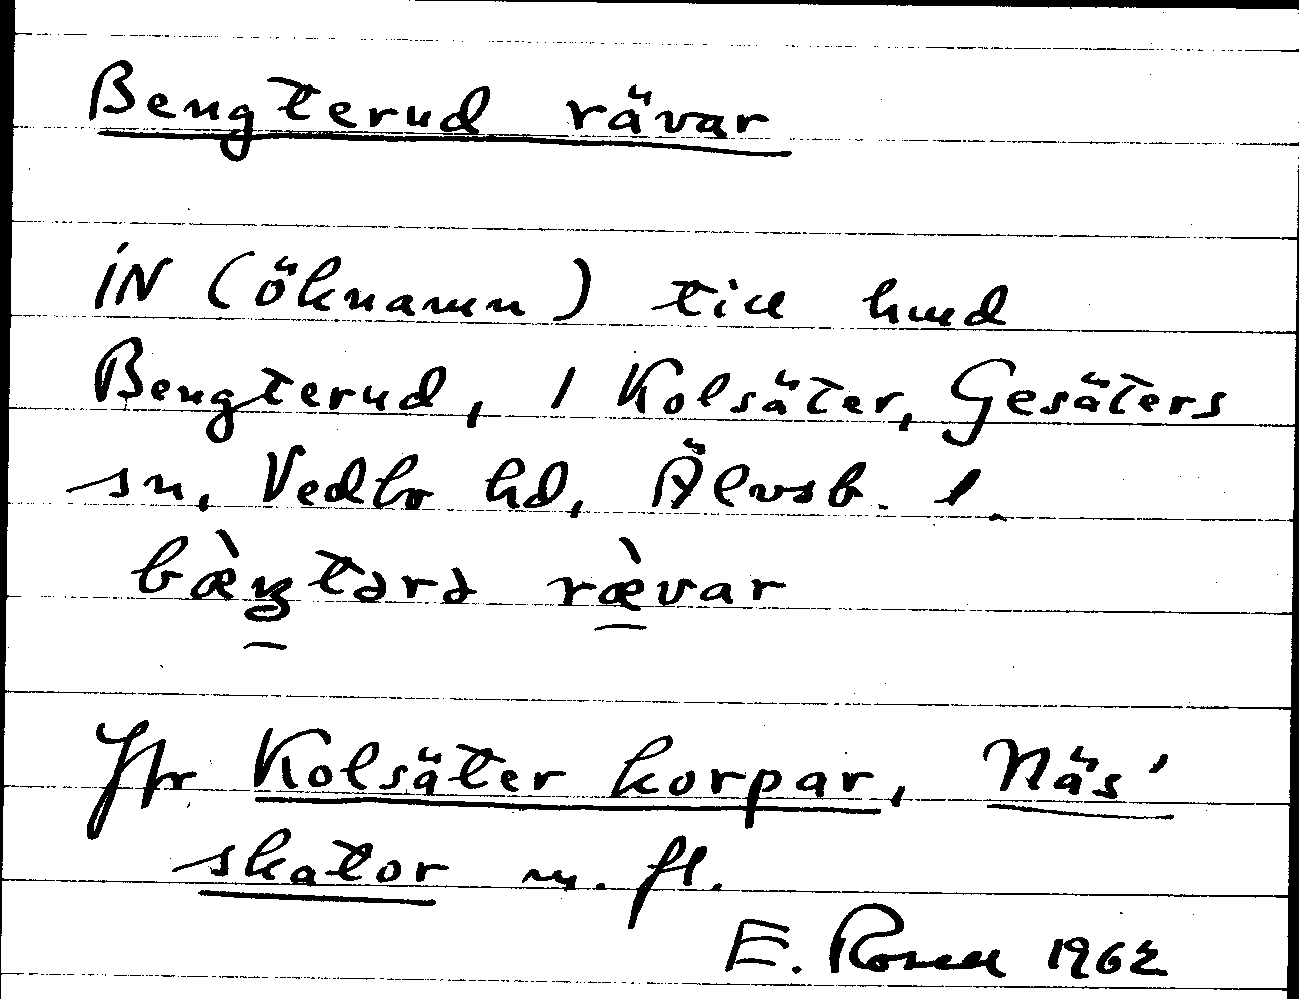 Bengterud rävar
IN (öknamn) till hmd
Bengterud, 1 Kolsäter, Gesäters
sn, Vedbo hd, Älvsb. l.
bæ̀ŋtərə ræ̀var
Jfr Kolsäter korpar, Näs'
skator m. fl.
E. Rosell 1962